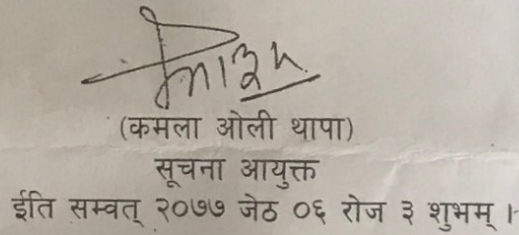 (कमला ओली थापा)
सूचना आयुक्त
ईति सम्वत् २०७७ जेठ ०६ रोज ३ शुभम् ।